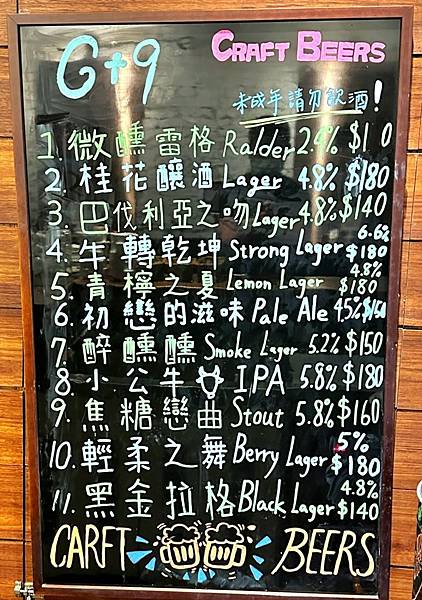 G+9
CRAFT BEERS
未成年請勿飲酒!
1 微醺雷格 Ralder 2.4% $1 0
2. 桂花釀酒 Lager 4.8% $180
3. 巴伐利亞之吻 Lager 4.8% $140
4. 牛轉乾坤 Strong Lager 6.6% $180
5. 青檸之夏 Lemon Lager 4.8% $180
6. 初戀的滋味 Pale Ale 4.5% $150
7. 醉醺醺 Smoke Lager 5.2% $150
8. 小公牛 IPA 5.8% $180
9. 焦糖戀曲 Stout 5.8% $160
10. 輕柔之舞 Berry Lager 5% $180
11. 黑金拉格 Black Lager 4.8% $140
CARFT BEERS